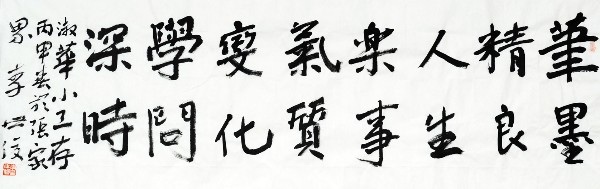 筆墨
精良
人生
楽事
氣質
变化
學問
深時
淑華小卫存
丙申春於張家
界 享